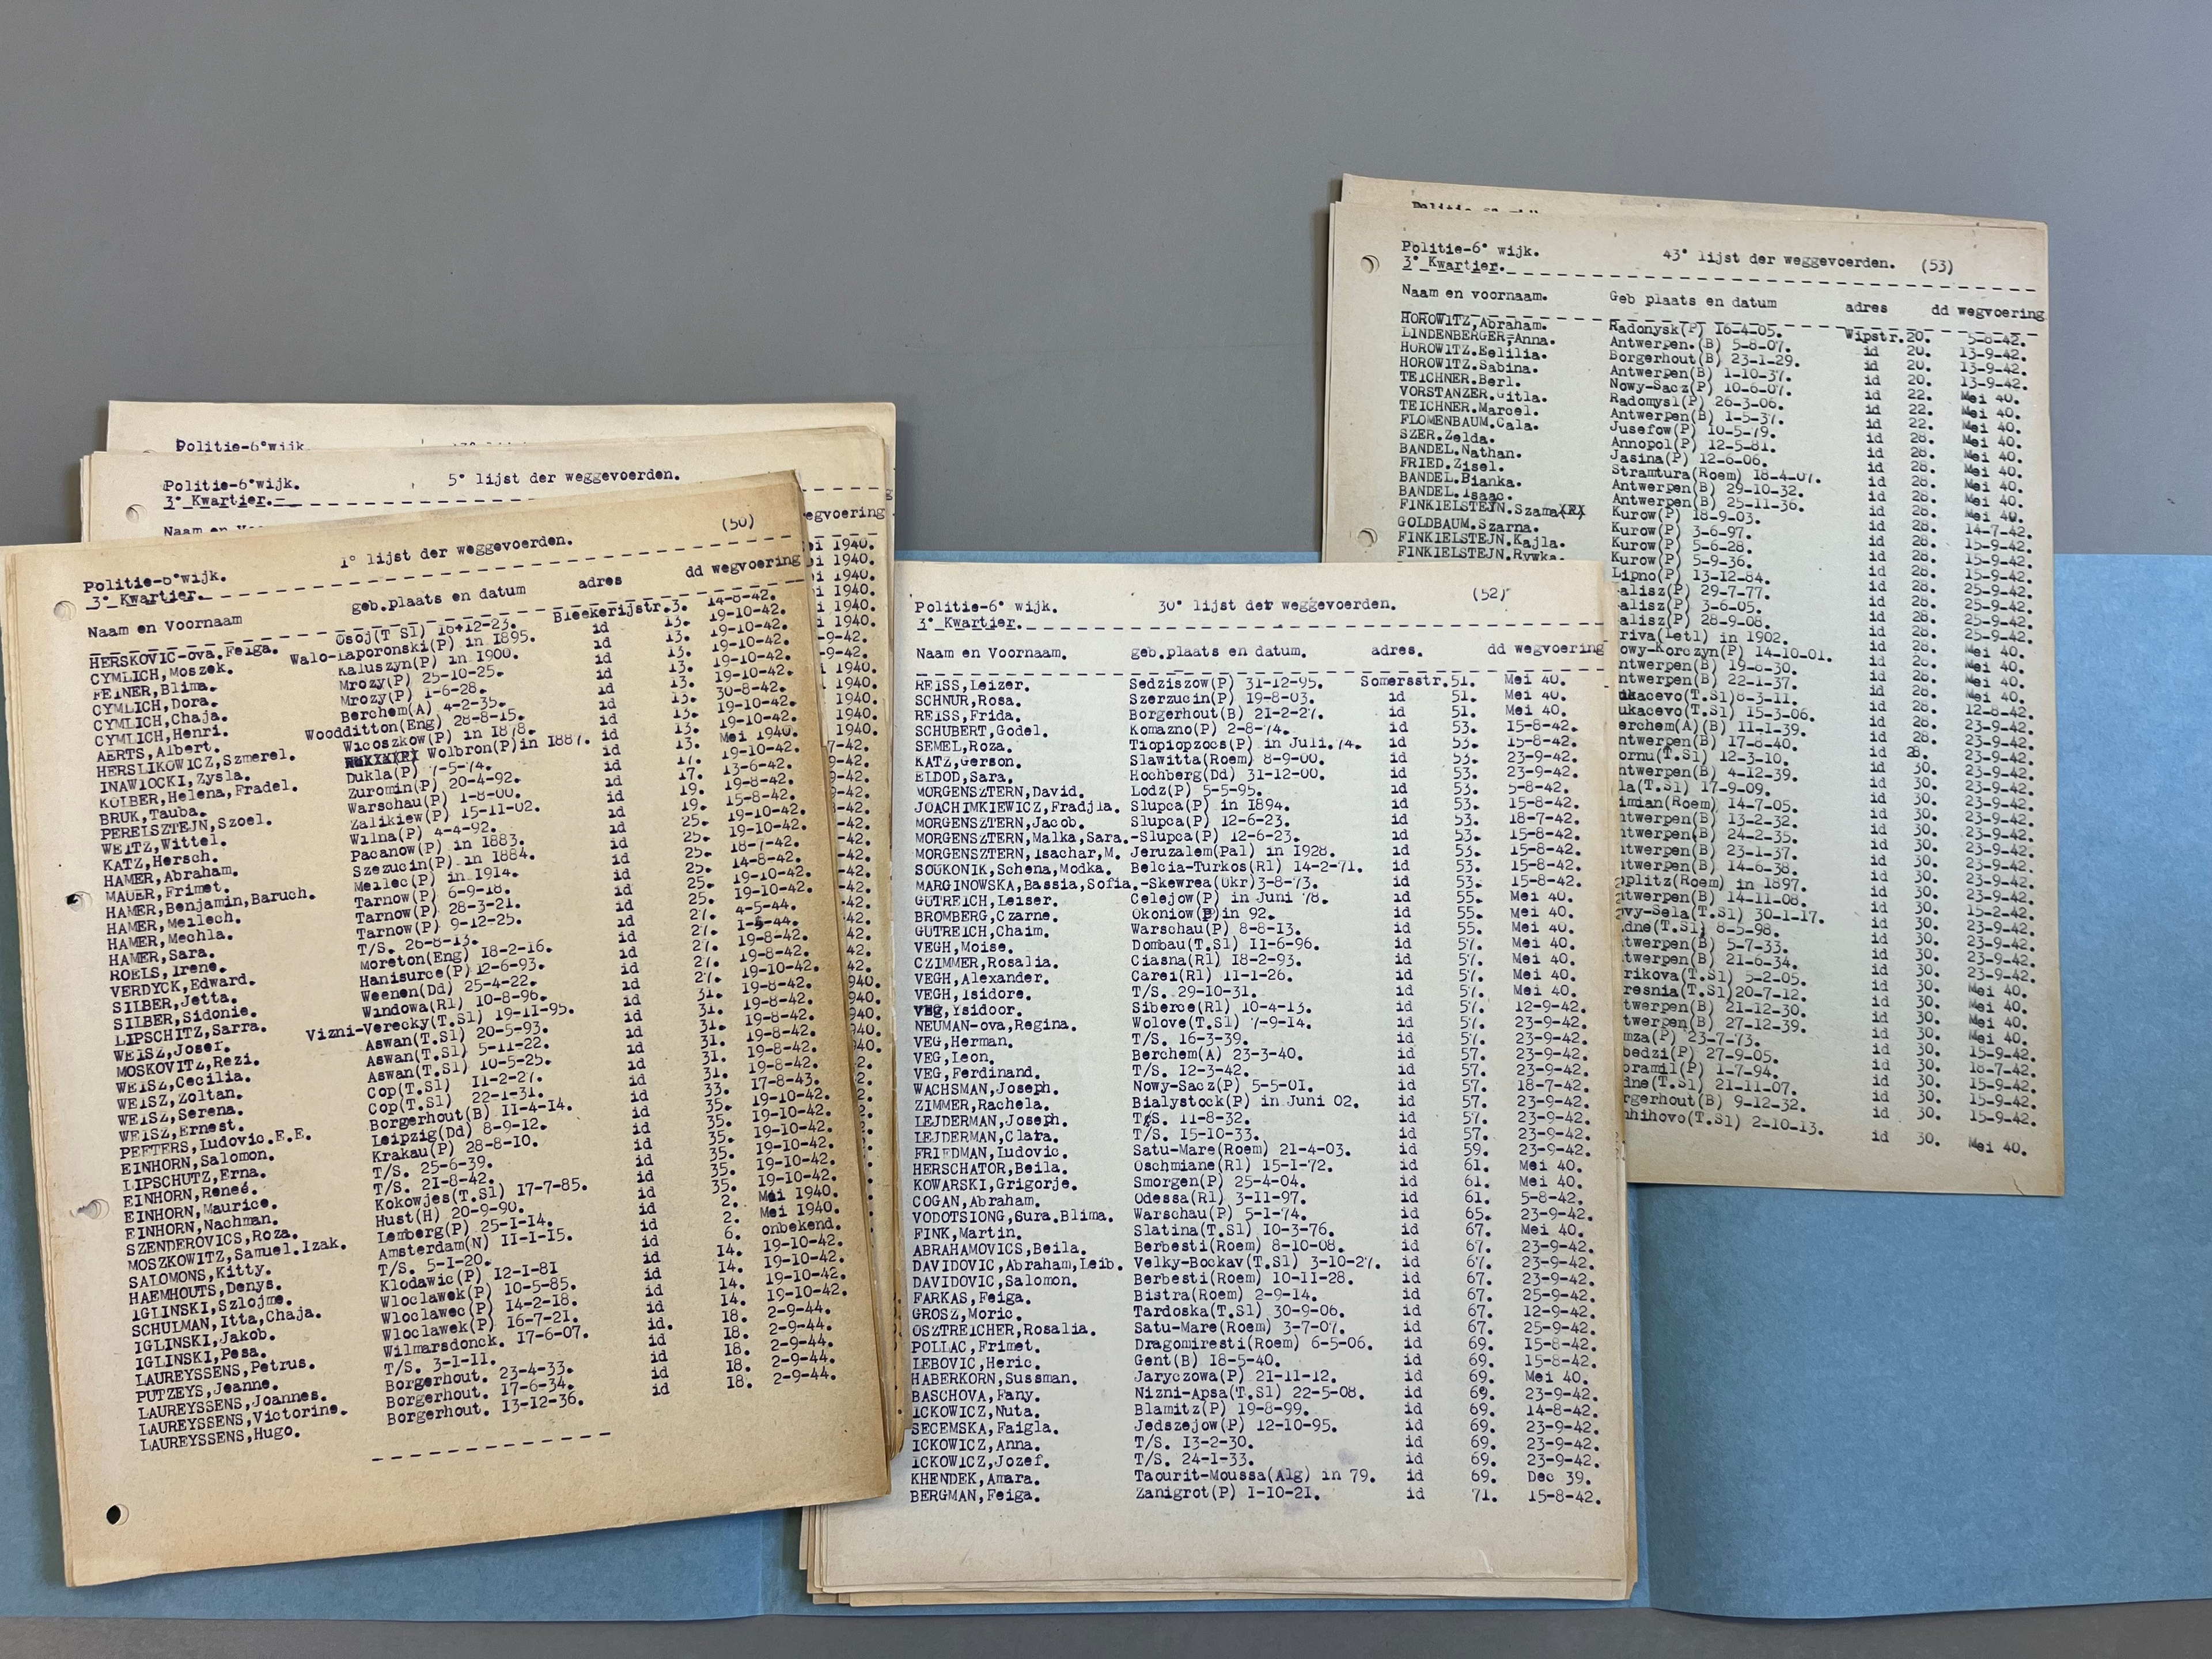 Politie-6°wijk.
5° lijst der weggevoerden.
Politie-6°wijk.
3° Kwartier.
1° lijst der weggevoerden. (50)
Politie-6°wijk.
3° Kwartier.
Naam en Voornaam geb.plaats en datum adres dd wegvoering
HERSKOVIC-ova, Feiga. Osoj(T Sl) 16-12-23. Bleekerijstr.3. 14-8-42.
CYMLICH, Moszek. Walo-Laporonski(P) in 1895. id 13. 19-10-42.
FEINER, Blima. Kaluszyn(P) in 1900. id 13. 19-10-42.
CYMLICH, Dora. Mrozy(P) 25-10-25. id 13. 19-10-42.
CYMLICH, Chaja. Mrozy(P) 1-6-28. id 13. 19-10-42.
CYMLICH, Henri. Berchem(A) 4-2-35. id 13. 19-10-42.
AERTS, Albert. Woodditton(Eng) 28-8-15. id 13. 30-8-42.
HERSLIKOWICZ, Szmerel. Wicoszkow(P) in 1878. id 13. 19-10-42.
INAWLOCKI, Zysla. Wolbron(P)in 1887. id 13. 19-10-42.
KOLBER, Helena, Fradel. Dukla(P) 7-5-74. id 13. Mei 1940.
BRUK, Tauba. Zuromin(P) 20-4-92. id 17. 19-10-42.
PERELSZTEJN, Szoel. Warschau(P) 1-8-00. id 17. 13-6-42.
WEITZ, Wittel. Zalikiew(P) 15-11-02. id 19. 19-8-42.
KATZ, Hersch. Wilna(P) 4-4-92. id 19. 15-8-42.
HAMER, Abraham. Pacanow(P) in 1883. id 25. 19-10-42.
MAUER, Frimet. Szezucin(P) in 1884. id 25. 19-10-42.
HAMER, Benjamin, Baruch. Meilec(P) in 1914. id 25. 18-7-42.
HAMER, Meilech. Tarnow(P) 6-9-18. id 25. 14-8-42.
HAMER, Mechla. Tarnow(P) 28-3-21. id 25. 19-10-42.
HAMER, Sara. Tarnow(P) 9-12-25. id 25. 19-10-42.
ROELS, Irene. T/S. 26-8-13. id 27. 4-5-44.
VERDYCK, Edward. Moreton(Eng) 18-2-16. id 27. 1-5-44.
SILBER, Jetta. Hanisurce(P) 12-6-93. id 27. 19-8-42.
SILBER, Sidonie. Weenen(Dd) 25-4-22. id 27. 19-8-42.
LIPSCHITZ, Sarra. Windowa(Rl) 10-8-96. id 27. 19-10-42.
WEISZ, Joser. Vizni-Verecky(T.Sl) 19-11-95. id 31. 19-8-42.
MOSKOVITZ, Rezi. Aswan(T.Sl) 20-5-93. id 31. 19-8-42.
WEISZ, Cecilia. Aswan(T.Sl) 5-11-22. id 31. 19-8-42.
WEISZ, Zoltan. Aswan(T.Sl) 10-5-25. id 31. 19-8-42.
WEISZ, Serena. Cop(T.Sl) 11-2-27. id 31. 19-8-42.
WEISZ, Ernest. Cop(T.Sl) 22-1-31. id 31. 19-8-42.
PEETERS, Ludovic.E.E. Borgerhout(B) 11-4-14. id 33. 17-8-43.
EINHORN, Salomon. Leipzig(Dd) 8-9-12. id 35. 19-10-42.
LIPSCHUTZ, Erna. Krakau(P) 28-8-10. id 35. 19-10-42.
EINHORN, Reneé. T/S. 25-6-39. id 35. 19-10-42.
EINHORN, Maurice. T/S. 21-8-42. id 35. 19-10-42.
EINHORN, Nachman. Kokowjes(T.Sl) 17-7-85. id 35. 19-10-42.
SZENDEROVICS, Roza. Hust(H) 20-9-90. id 2. Mei 1940.
MOSZKOWITZ, Samuel.Izak. Lemberg(P) 25-1-14. id 2. Mei 1940.
SALOMONS, Kitty. Amsterdam(N) 11-1-15. id 6. onbekend.
HAEMHOUTS, Denys. T/S. 5-1-20.
IGLINSKI, Szlojme. Klodawic(P) 12-1-81 id 14. 19-10-42.
SCHULMAN, Itta, Chaja. Wloclawek(P) 10-5-85. id 14. 19-10-42.
IGLINSKI, Jakob. Wloclawec(P) 14-2-18. id 14. 19-10-42.
IGLINSKI, Pesa. Wloclawek(P) 16-7-21. id 14. 19-10-42.
LAUREYSSENS, Petrus. Wilmarsdonck. 17-6-07. id. 18. 2-9-44.
PUTZEYS, Jeanne. T/S. 3-1-11. id 18. 2-9-44.
LAUREYSSENS, Joannes. Borgerhout. 23-4-33. id 18. 2-9-44.
LAUREYSSENS, Victorine. Borgerhout. 17-6-34. id 18. 2-9-44.
LAUREYSSENS, Hugo. Borgerhout. 13-12-36. id 18. 2-9-44.
Politie-6° wijk. 30° lijst der weggevoerden. (52)
3° Kwartier.
Naam en Voornaam. geb.plaats en datum. adres. dd wegvoering
REISS, Leizer. Sedziszow(P) 31-12-95. Somersstr.51. Mei 40.
SCHNUR, Rosa. Szerzucin(P) 19-8-03. id 51. Mei 40.
REISS, Frida. Borgerhout(B) 21-2-27. id 51. Mei 40.
SCHUBERT, Godel. Komazno(P) 2-8-74. id 53. 15-8-42.
SEMEL, Roza. Tiopiopzocs(P) in Juli.74. id 53. 15-8-42.
KATZ, Gerson. Slawitta(Roem) 8-9-00. id 53. 23-9-42.
ELDOD, Sara. Hochberg(Dd) 31-12-00. id 53. 23-9-42.
MORGENSZTERN, David. Lodz(P) 5-5-95. id 53. 5-8-42.
JOACHIMKIEWICZ, Fradjla. Slupca(P) in 1894. id 53. 15-8-42.
MORGENSZTERN, Jacob. Slupca(P) 12-6-23. id 53. 18-7-42.
MORGENSZTERN, Malka, Sara.-Slupca(P) 12-6-23. id 53. 15-8-42.
MORGENSZTERN, Isachar, M. Jeruzalem(Pal) in 1928. id 53. 15-8-42.
SOUKONIK, Schena, Modka. Belcia-Turkos(Rl) 14-2-71. id 53. 15-8-42.
MARGINOWSKA, Bassia, Sofia.-Skewrea(Okr)3-8-73. id 53. 15-8-42.
GUTREICH, Leiser. Celejow(P) in Juni 78. id 55. Mei 40.
BROMBERG, Czarne. Okoniow(P)in 92. id 55. Mei 40.
GUTREICH, Chaim. Warschau(P) 8-8-13. id 55. Mei 40.
VEGH, Moise. Dombau(T.Sl) 11-6-96. id 57. Mei 40.
CZIMMER, Rosalia. Ciasna(Rl) 18-2-93. id 57. Mei 40.
VEGH, Alexander. Carei(Rl) 11-1-26. id 57. Mei 40.
VEGH, Isidore. T/S. 29-10-31. id 57. Mei 40.
VEG, Ysidoor. Siberce(Rl) 10-4-13. id 57. 12-9-42.
NEUMAN-ova, Regina. Wolove(T.Sl) 7-9-14. id 57. 23-9-42.
VEG, Herman. T/S. 16-3-39. id 57. 23-9-42.
VEG, Leon. Berchem(A) 23-3-40. id 57. 23-9-42.
VEG, Ferdinand. T/S. 12-3-42. id 57. 23-9-42.
WACHSMAN, Joseph. Nowy-Sacz(P) 5-5-01. id 57. 18-7-42.
ZIMMER, Rachela. Bialystock(P) in Juni 02. id 57. 23-9-42.
LEJDERMAN, Joseph. T/S. 11-8-32. id 57. 23-9-42.
LEJDERMAN, Clara. T/S. 15-10-33. id 57. 23-9-42.
FRIEDMAN, Ludovic. Satu-Mare(Roem) 21-4-03. id 59. 23-9-42.
HERSCHATOR, Beila. Oschmiane(Rl) 15-1-72. id 61. Mei 40.
KOWARSKI, Grigorje. Smorgen(P) 25-4-04. id 61. Mei 40.
COGAN, Abraham. Odessa(Rl) 3-11-97. id 61. 5-8-42.
VODOTSIONG, Sura.Blima. Warschau(P) 5-1-74. id 65. 23-9-42.
FINK, Martin. Slatina(T.Sl) 10-3-76. id 67. Mei 40.
ABRAHAMOVICS, Beila. Berbesti(Roem) 8-10-08. id 67. 23-9-42.
DAVIDOVIC, Abraham, Leib. Velky-Bockav(T.Sl) 3-10-27. id 67. 23-9-42.
DAVIDOVIC, Salomon. Berbesti(Roem) 10-11-28. id 67. 23-9-42.
FARKAS, Feiga. Bistra(Roem) 2-9-14. id 67. 25-9-42.
GROSZ, Moric. Tardoska(T.Sl) 30-9-06. id 67. 12-9-42.
OSZTREICHER, Rosalia. Satu-Mare(Roem) 3-7-07. id 67. 25-9-42.
POLLAC, Frimet. Dragomiresti(Roem) 6-5-06. id 69. 15-8-42.
LEBOVIC, Heric. Gent(B) 18-5-40. id 69. 15-8-42.
HABERKORN, Sussman. Jaryczowa(P) 21-11-12. id 69. Mei 40.
BASCHOVA, Fany. Nizni-Apsa(T.Sl) 22-5-08. id 69. 23-9-42.
ICKOWICZ, Nuta. Blamitz(P) 19-8-99. id 69. 14-8-42.
SECEMSKA, Faigla. Jedszejow(P) 12-10-95. id 69. 23-9-42.
ICKOWICZ, Anna. T/S. 13-2-30. id 69. 23-9-42.
ICKOWICZ, Jozef. T/S. 24-1-33. id 69. 23-9-42.
KHENDEK, Amara. Taourit-Moussa(Alg) in 79. id 69. Dec 39.
BERGMAN, Feiga. Zanigrot(P) 1-10-21. id 71. 15-8-42.
Politie-6° wijk. 43° lijst der weggevoerden. (53)
3° Kwartier.
Naam en voornaam. Geb plaats en datum adres dd wegvoering
HOROWITZ, Abraham. Radonysk(P) 16-4-05. Wipstr.20. 5-8-42.
LINDENBERGER-Anna. Antwerpen.(B) 5-8-07. id 20. 13-9-42.
HOROWITZ.Eelilia. Borgerhout(B) 23-1-29. id 20. 13-9-42.
HOROWITZ.Sabina. Antwerpen(B) 1-10-37. id 20. 13-9-42.
TEICHNER.Berl. Nowy-Sacz(P) 10-6-07. id 22. Mei 40.
VORSTANZER.Gitla. Radomysl(P) 26-3-06. id 22. Mei 40.
TEICHNER.Marcel. Antwerpen(B) 1-5-37. id 22. Mei 40.
FLOMENBAUM.Cala. Jusefow(P) 10-5-79. id 28. Mei 40.
SZER.Zelda. Annopol(P) 12-5-81. id 28. Mei 40.
BANDEL.Nathan. Jasina(P) 12-6-06. id 28. Mei 40.
FRIED.Zisel. Stramtura(Roem) 18-4-07. id 28. Mei 40.
BANDEL.Bianka. Antwerpen(B) 29-10-32. id 28. Mei 40.
BANDEL.Isaac. Antwerpen(B) 25-11-36. id 28. Mei 40.
FINKIELSTEJN.Szama Kurow(P) 18-9-03. id 28. 14-7-42.
GOLDBAUM.Szarna. Kurow(P) 3-6-97. id 28. 15-9-42.
FINKIELSTEJN.Kajla. Kurow(P) 5-6-28. id 28. 15-9-42.
FINKIELSTEJN.Rywka. Kurow(P) 5-9-36. id 28. 15-9-42.
Lipno(P) 13-12-84.
alisz(P) 29-7-77.
alisz(P) 3-6-05.
alisz(P) 28-9-08.
riva(Letl) in 1902.
owy-Korczyn(P) 14-10-01.
ntwerpen(B) 19-8-30.
ntwerpen(B) 22-1-37.
ukacevo(T.Sl)8-3-11.
ukacevo(T.Sl) 15-3-06.
erchem(A)(B) 11-1-39.
ntwerpen(B) 17-8-40.
ornu(T.Sl) 12-3-10.
ntwerpen(B) 4-12-39.
la(T.Sl) 17-9-09.
imian(Roem) 14-7-05.
ntwerpen(B) 13-2-32.
ntwerpen(B) 24-2-35.
ntwerpen(B) 23-1-37.
ntwerpen(B) 14-6-38.
oplitz(Roem) in 1897.
ntwerpen(B) 14-11-08.
avy-Sela(T.Sl) 30-1-17.
dne(T.Sl) 8-5-98.
twerpen(B) 5-7-33.
twerpen(B) 21-6-34.
rikova(T.Sl) 5-2-05.
resnia(T.Sl)20-7-12.
twerpen(B) 21-12-30.
twerpen(B) 27-12-39.
mza(P) 23-7-73.
bedzi(P) 27-9-05.
bramil(P) 1-7-94.
dne(T.Sl) 21-11-07.
rgerhout(B) 9-12-32.
nhihovo(T.Sl) 2-10-13. id 30. Mei 40.